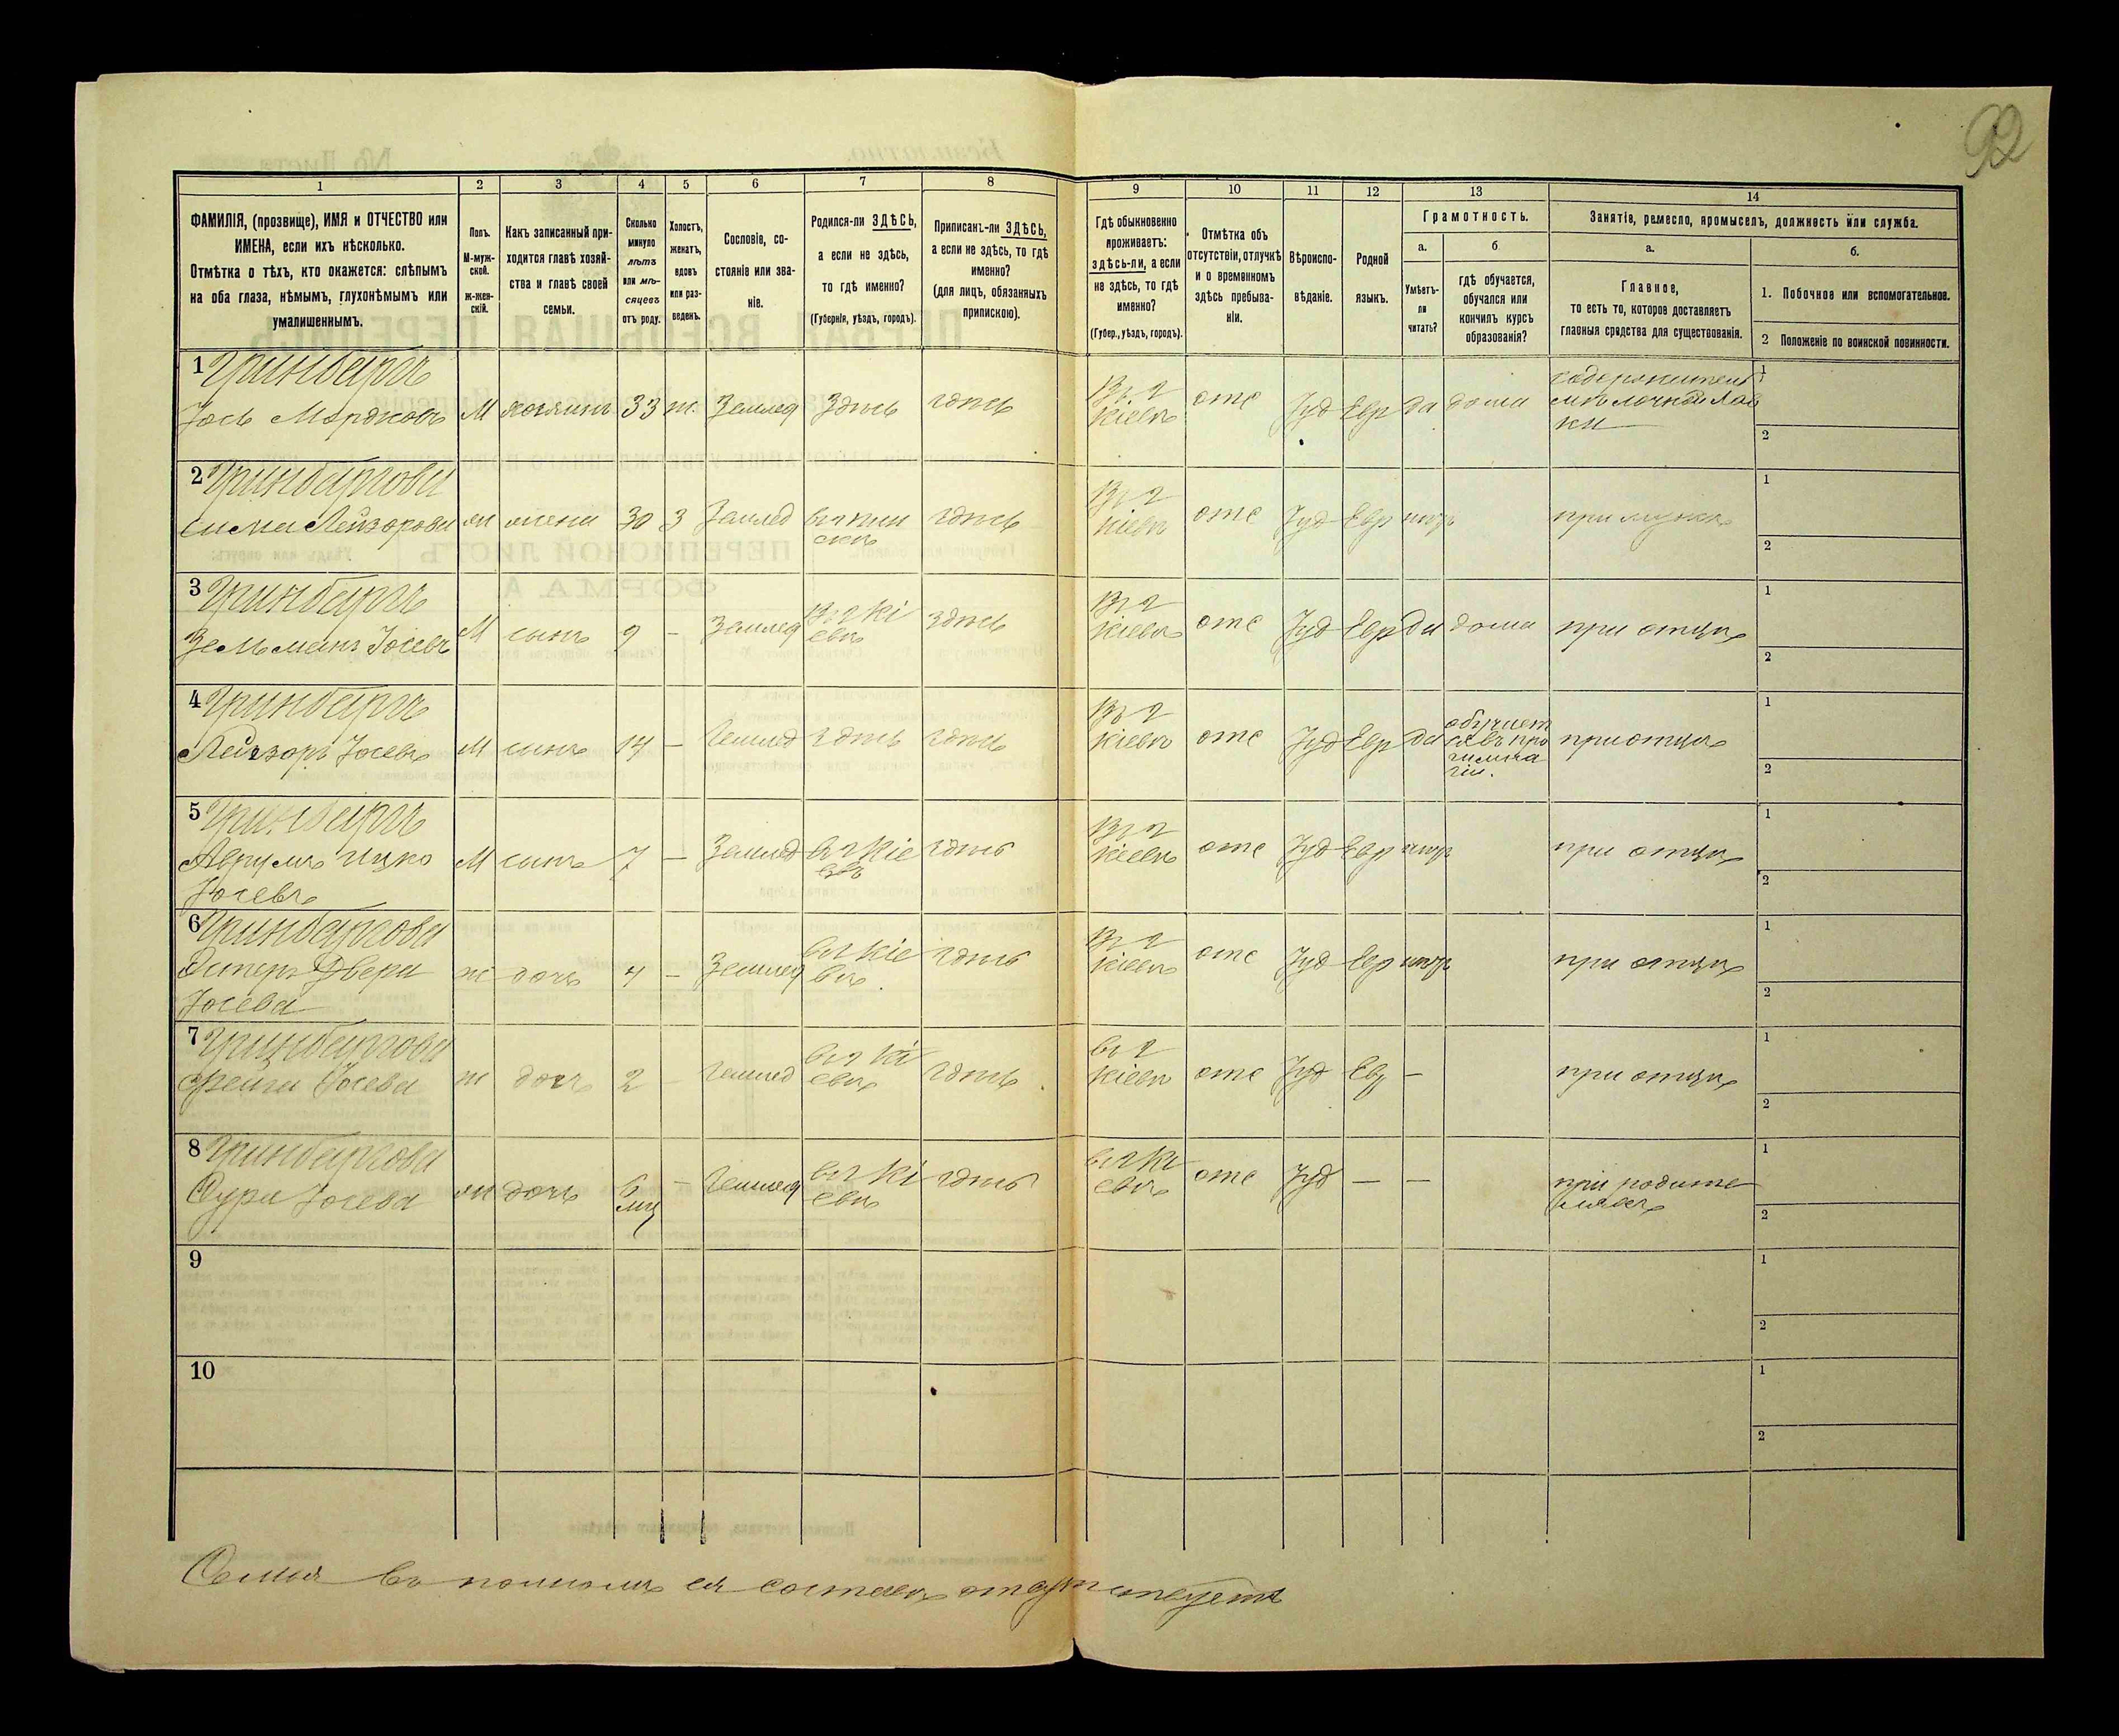 92
1 2 3 4 5 6 7 8 9 10 11 12 13 14
ФАМИЛІЯ, (прозвище), ИМЯ и ОТЧЕСТВО или
ИМЕНА, если ихъ нѣсколько.
Отмѣтка о тѣхъ, кто окажется: слѣпымъ
на оба глаза, нѣмымъ, глухонѣмымъ или
умалишеннымъ.
Полъ.
М-муж-
ской.
Ж-жен-
скій.
Какъ записанный при-
ходится главѣ хозяй-
ства и главѣ своей
семьи.
Сколько
минуло
лѣтъ
или мѣ-
сяцевъ
отъ роду.
Холостъ,
женатъ,
вдовъ
или раз-
веденъ.
Сословіе, со-
стояніе или зва-
ніе.
Родился-ли ЗДѢСЬ,
а если не здѣсь,
то гдѣ именно?
(Губернія, уѣздъ, городъ).
Приписанъ-ли ЗДѢСЬ,
а если не здѣсь, то гдѣ
именно?
(для лицъ, обязанныхъ
припискою).
Гдѣ обыкновенно
проживаетъ:
здѣсь-ли, а если
не здѣсь, то гдѣ
именно?
(Губер., уѣздъ, городъ).
Отмѣтка объ
отсутствіи, отлучкѣ
и о временномъ
здѣсь пребыва-
ніи.
Вѣроиспо-
вѣданіе.
Родной
языкъ.
Грамотность.
а.
Умѣетъ-
ли
читать?
б
гдѣ обучается,
обучался или
кончилъ курсъ
образованія?
Занятіе, ремесло, промыселъ, должность или служба.
а.
Главное,
то есть то, которое доставляетъ
главныя средства для существованія.
б.
1. Побочное или вспомогательное.
2 Положеніе по воинской повинности.
1 Гринбергъ
Іось Мордковъ М хозяинъ 33 ж. Землед Здѣсь здѣсь
Въ г
Кіевѣ отс Іуд Евр да дома
содержитель
мелочной лав
ки
1
2
2 Гринбергова
Сима Лейзорова ж жена 30 З Землед здѣсь
Въ г
Кіевѣ отс Іуд Евр при мужѣ
1
2
3 Гринбергъ
Зельманъ Іосевъ М сынъ 9 - Землед Въ г Кі
евѣ здѣсь
Въ г
Кіевѣ отс Іуд Евр да дома при отцѣ
1
2
4 Гринбергъ
Лейзоръ Іосевъ М сынъ 14 - Землед здѣсь здѣсь
Въ г
Кіевѣ отс Іуд Евр да
обучает
ся въ про
гимна
зіи.
при отцѣ
1
2
5 Гринбергъ
Аврумъ Ицко
Іосевъ
М сынъ 7 - Землед въ г Кіе
евѣ здѣсь
Въ г
Кіевѣ отс Іуд Евр при отцѣ
1
2
6 Гринбергова
Эстеръ Двера
Іосева
ж дочь 4 - Землед въ г Кіе
вѣ. здѣсь
Въ г
Кіевѣ отс Іуд Евр при отцѣ
1
2
7 Гринбергова
Фейга Іосева ж дочь 2 Землед въ г Кі
евѣ здѣсь
въ г
Кіевѣ отс Іуд Евр - при отцѣ
1
2
8 Гринбергова
Сура Іосева ж дочь 6
мц - Землед въ г Кі
евѣ здѣсь
въ г Кі
евѣ отс Іуд - -
при родите
ляхъ
1
2
9
1
2
10
1
2
Семья въ полномъ ея составѣ отсутствуетъ